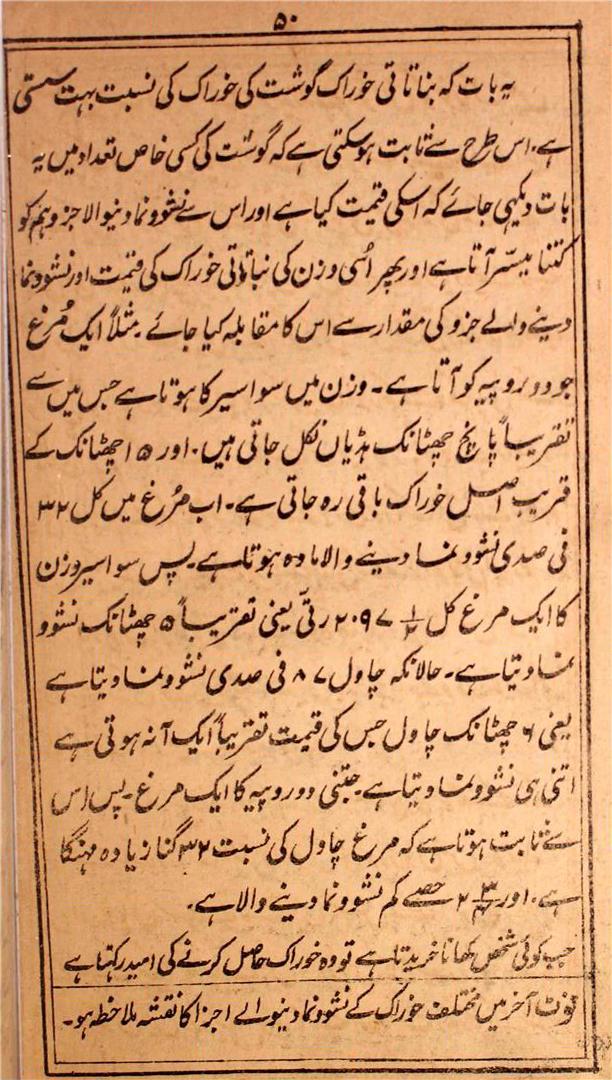 ۵۰
یہ بات کہ بناتاتی خوراک گوشت کی خوراک کی نسبت بہت سستی
ہے۔ اس طرح سے ثابت ہوسکتی ہے کہ گوشت کی کسی خاص تعداد میں یہ
بات دیکھی جائے کہ اسکی قیمت کیا ہے اور اس سے نشوونما دینوالا جزو ہم کو
کتنا میسّر آتا ہے اور پھر اُسی وزن کی نباتاتی خوراک کی قیمت اور نشوونما
دینے والے جزو کی مقدار سے اس کا مقابلہ کیا جائے۔ مثلاً ایک مُرغ
جو دو روپیہ کو آتا ہے۔ وزن میں سوا سیر کا ہوتا ہے جس میں سے
تقریباً پانچ چھٹانک ہڈیاں نکل جاتی ہیں۔ اور ۱۵ چھٹانک کے
قریب اصل خوراک باقی رہ جاتی ہے۔ اب مرُغ میں کل ۳۲
فی صدی نشوونما دینے والا مادہ ہوتا ہے۔ پس سوا سیر وزن
کا ایک مرغ کل ۲۰۹۷ ۱/۲ رتی یعنی تقریباً ۵ چھٹانک نشوو
نما دیتا ہے۔ حالانکہ چاول ۸۷ فی صدی نشوونما دیتا ہے
یعنی ۶ چھٹانک چاول جس کی قیمت تقریباً ایک آنہ ہوتی ہے
اتنی ہی نشوونما دیتا ہے۔ جتنی دو روپیہ کا ایک مرغ۔ پس اس
سے ثابت ہوتا ہے کہ مرغ چاول کی نسبت ۳۲ گنا زیادہ مہنگا
ہے۔ اور ۲ ۳/۴ حصے کم نشوونما دینے والا ہے۔
جب کوئی شخص کھانا خریدتا ہے تو وہ خوراک حاصل کرنے کی امید رکہتا ہے
نوٹ آخر میں مختلف خوراک کے نشوونما دینوالے اجزا کا نقشہ ملاحظہ ہو۔